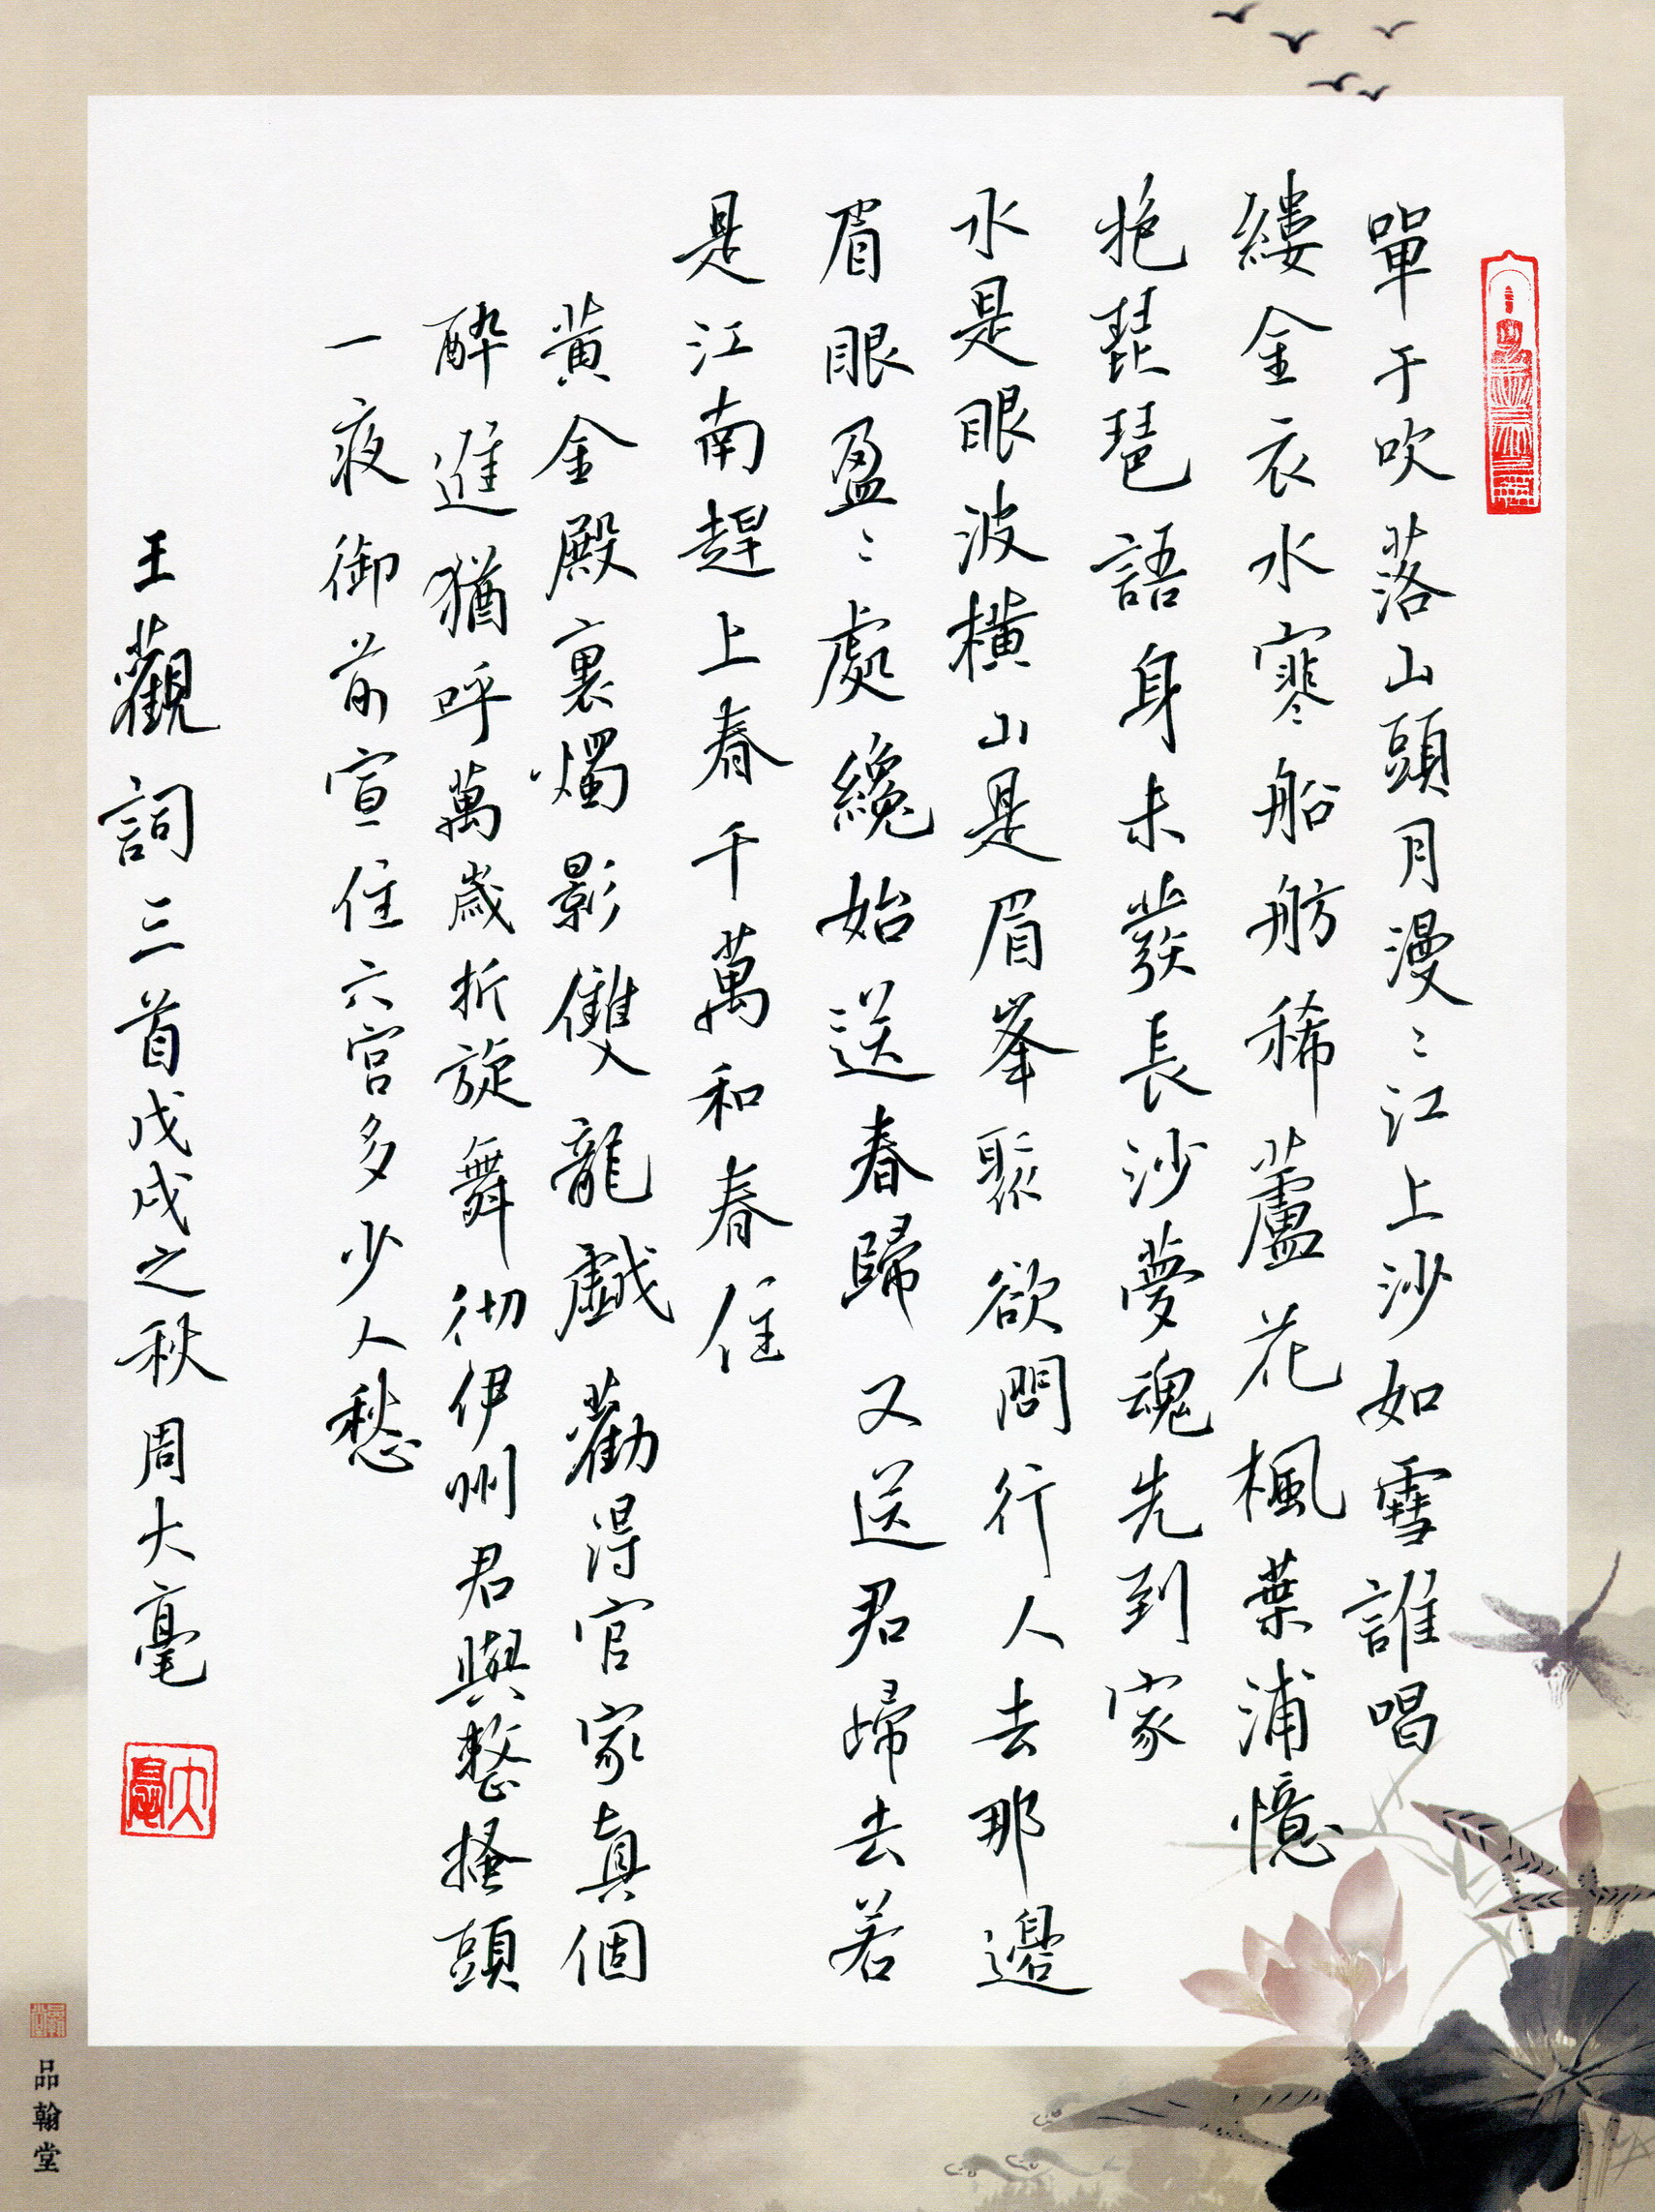 單于吹落山頭月漫〻江上沙如雪誰唱
縷金衣水寒船舫稀蘆花楓葉浦憶
抱琵琶語身未發長沙夢魂先到家
水是眼波橫山是眉峯聚欲問行人去那邊
眉眼盈〻處纔始送春歸又送君歸去若
是江南趕上春千萬和春住
黃金殿裏燭影雙龍戲勸得官家真個
醉進猶呼萬歲折旋舞彻伊州君與整搔頭
一夜御前宣住六宮多少人愁
王觀詞三首戊戌之秋周大毫
大毫
品翰堂